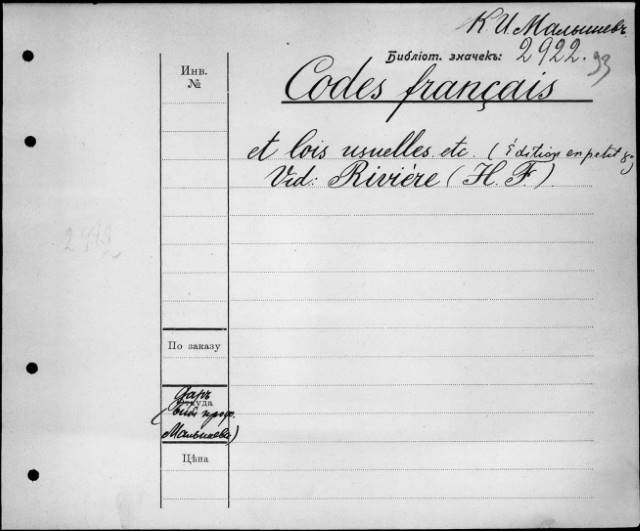 К И. Малышевъ
Библіот. значекъ: 2922.
93
Инв.
№
Codes français
et lois usuelles. etc. (Édition en petit 8º)
Vid: Rivière (H. F.).
По заказу
Даръ
Откуда
проф.
Малышева)
Цѣна